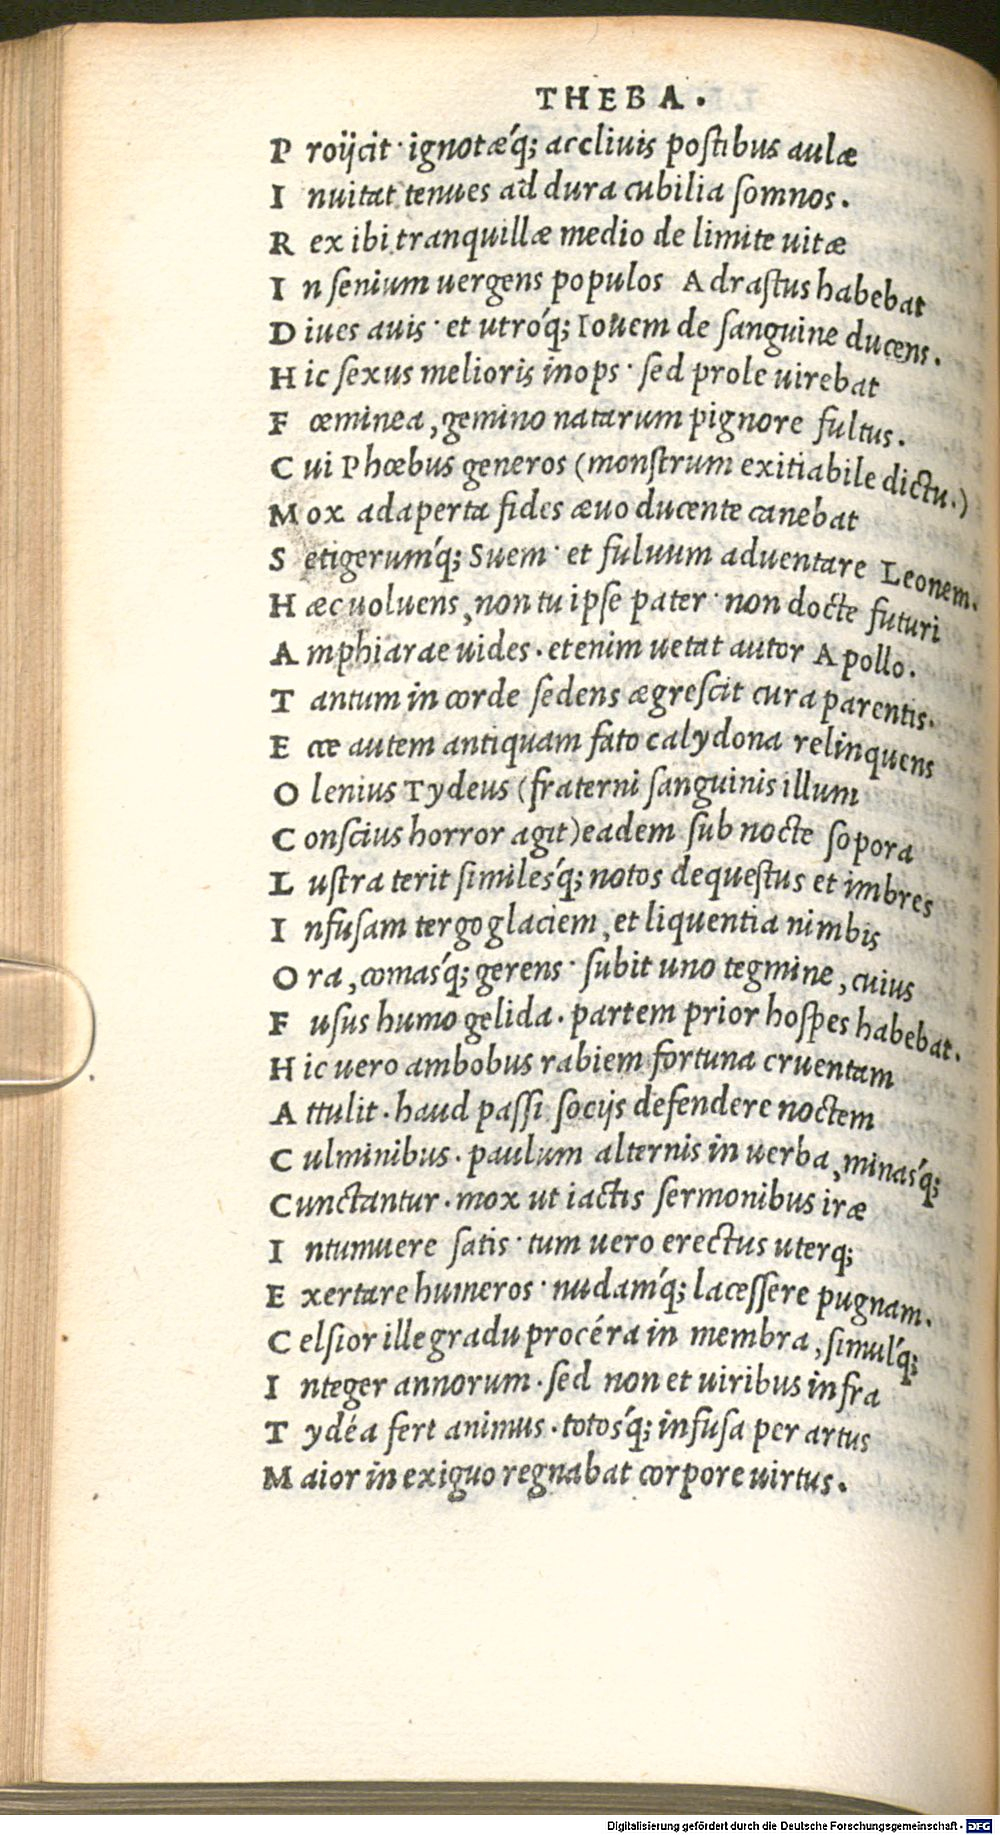 THEBA.
P roijcit· ignotæq́; accliuis poſtibus aulæ
I nuitat tenues ad dura cubilia ſomnos.
R ex ibi tranquillæ medio de limite uitæ
I n ſenium uergens populos Adraſtus habebat
D iues auis· et utróq; Iouem de ſanguine ducens.
H ic ſexus melioris inops· ſed prole uirebat
F œminea, gemino natarum pignore fultus.
C ui Phœbus generos (monſtrum exitiabile dictu.)
M ox adaperta fides æuo ducente canebat
S etigerumq́; Suem· et fuluum aduentare Leonem.
H æc uoluens, non tu ipſe pater· non docte futuri
A mphiarae uides. etenim uetat autor Apollo.
T antum in corde ſedens ægreſcit cura parentis.
E cce autem antiquam fato calydona relinquens
O lenius Tydeus (fraterni ſanguinis illum
C onſcius horror agit) eadem ſub nocte ſopora
L uſtra terit ſimilesq́; notos dequeſtus et imbres
I nfuſam tergo glaciem, et liquentia nimbis
O ra, comasq́; gerens· ſubit uno tegmine, cuius
F uſus humo gelida. partem prior hoſpes habebat.
H ic uero ambobus rabiem fortuna cruentam
A ttulit. haud paſſi ſocijs defendere noctem
C ulminibus. paulum alternis in uerba, minasq́;
C unctantur. mox ut iactis ſermonibus iræ
I ntumuere ſatis· tum uero erectus uterq;
E xertare humeros· nudamq́; laceſſere pugnam.
C elſior ille gradu procéra in membra, ſimulq́;
I nteger annorum. ſed non et uiribus infra
T ydéa fert animus. totosq́; infuſa per artus
M aior in exiguo regnabat corpore uirtus.
Digitalisierung gefördert durch die Deutsche Forschungsgemeinschaft · DFG